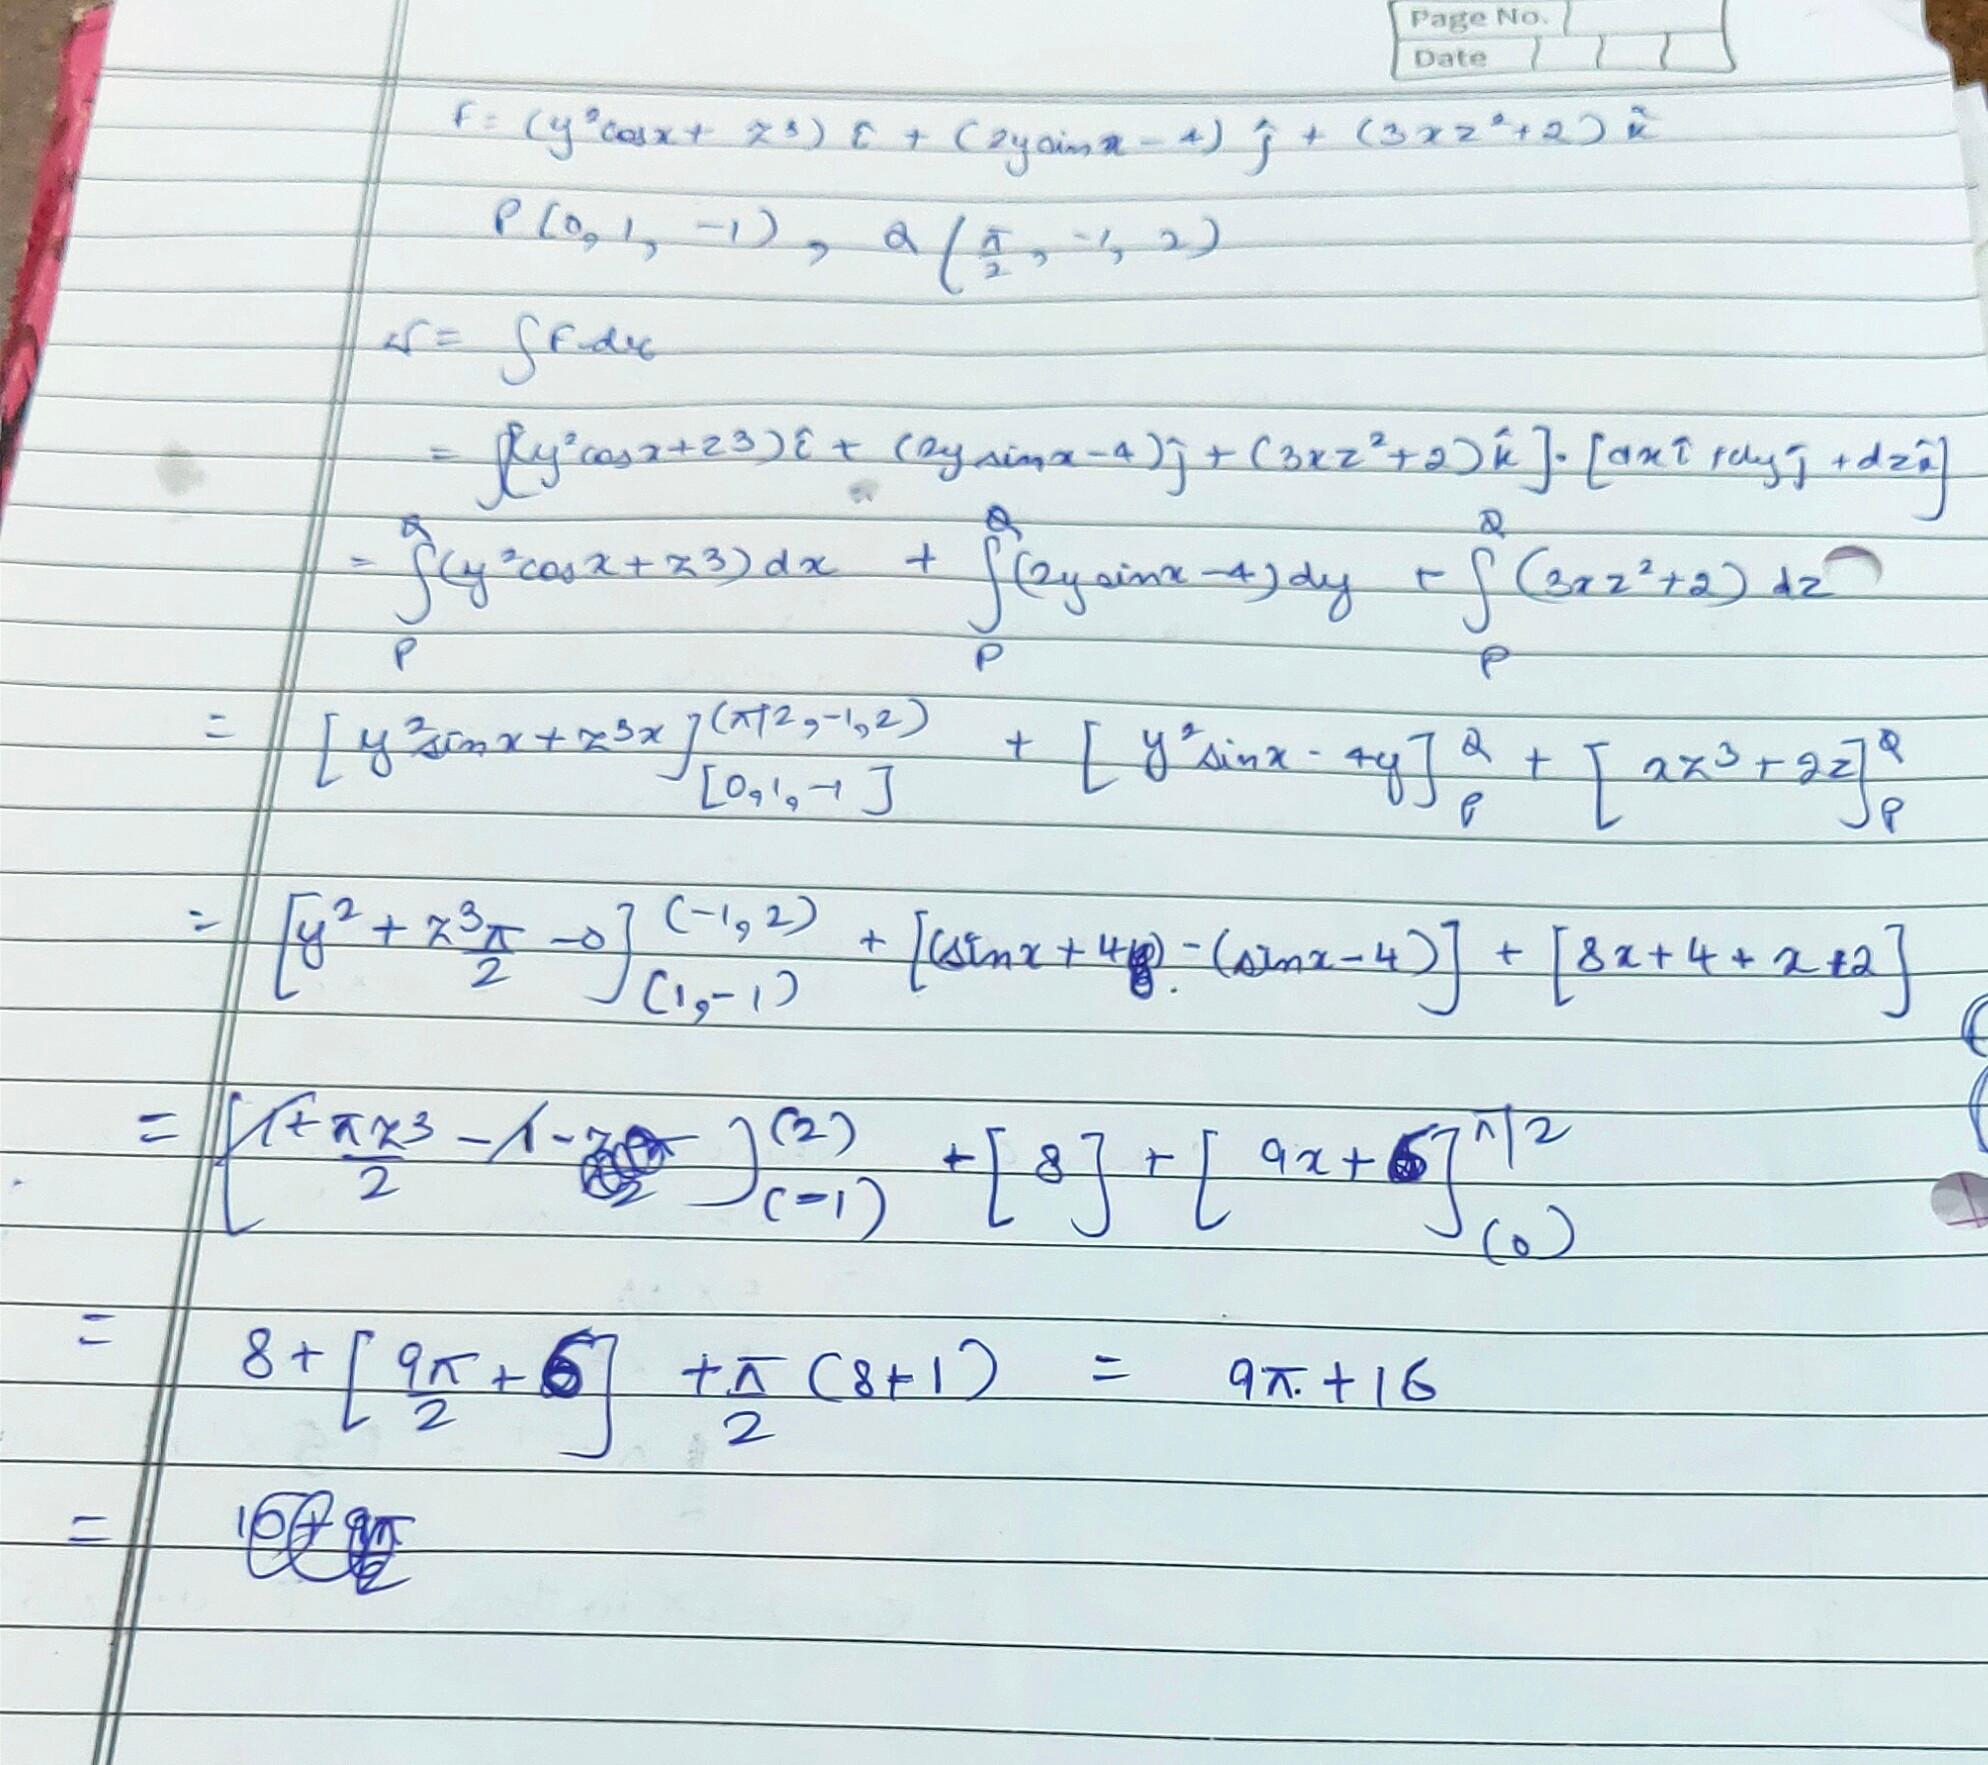 Page No.
Date
F = (y²cosx + z³) î + (2ysinx - 4) ĵ + (3xz² + 2) k̂
P(0, 1, -1), Q(π/2, -1, 2)
= ∫F.dr
= ∫[(y²cosx + z3) î + (2ysinx - 4) ĵ + (3xz² + 2) k̂] . [dxî + dyĵ + dzk̂]
= ∫_P^Q (y²cosx + z3) dx + ∫_P^Q (2ysinx - 4) dy + ∫_P^Q (3xz² + 2) dz
= [y²sinx + z³x]_[0,1,-1]^(π/2,-1,2) + [y²sinx - 4y]_P^Q + [xz³ + 2z]_P^Q
= [y² + z³π/2 - 0]_(1,-1)^(-1,2) + [(sinx + 4) - (sinx - 4)] + [8x + 4 + x + 2]
= [1 + πz3/2 - 1 - ]_(-1)^(2) + [8] + [9x + 6]_(0)^π/2
= 8 + [9π/2 + 6] + π/2 (8+1) = 9π + 16
=